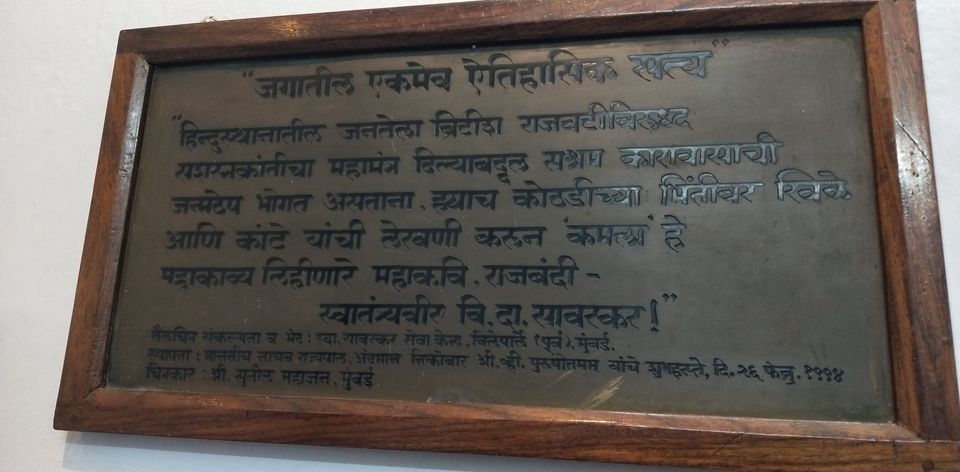 "जगातील एकमेव ऐतिहासिक सत्य"
"हिन्दुस्थानातील जनतेला ब्रिटीश राजवटीविरुध्द
सशस्त्रक्रांतीचा महामंत्र दिल्याबद्दल सश्रम कारावासाची
जन्मठेप भोगत असताना, ह्याच कोठडीच्या भिंतीवर खिळे
आणि कांटे यांची लेखणी करुन 'कमला' हे
महाकाव्य लिहीणारे महाकवि, राजबंदी -
स्वातंत्र्यवीर वि. दा. सावरकर!"
तैलचित्र संकल्पना व भेट : स्वा. सावरकर सेवा केन्द्र, विलेपार्ले (पुर्व), मुंबई.
स्थापना : माननीय नायब राज्यपाल, अंदमान निकोबार श्री. व्ही. पुरुषोत्तमन यांचे शुभहस्ते, दि. २६ फेब्रु. १९९४
चित्रकार : श्री. सुनील महाजन, मुंबई